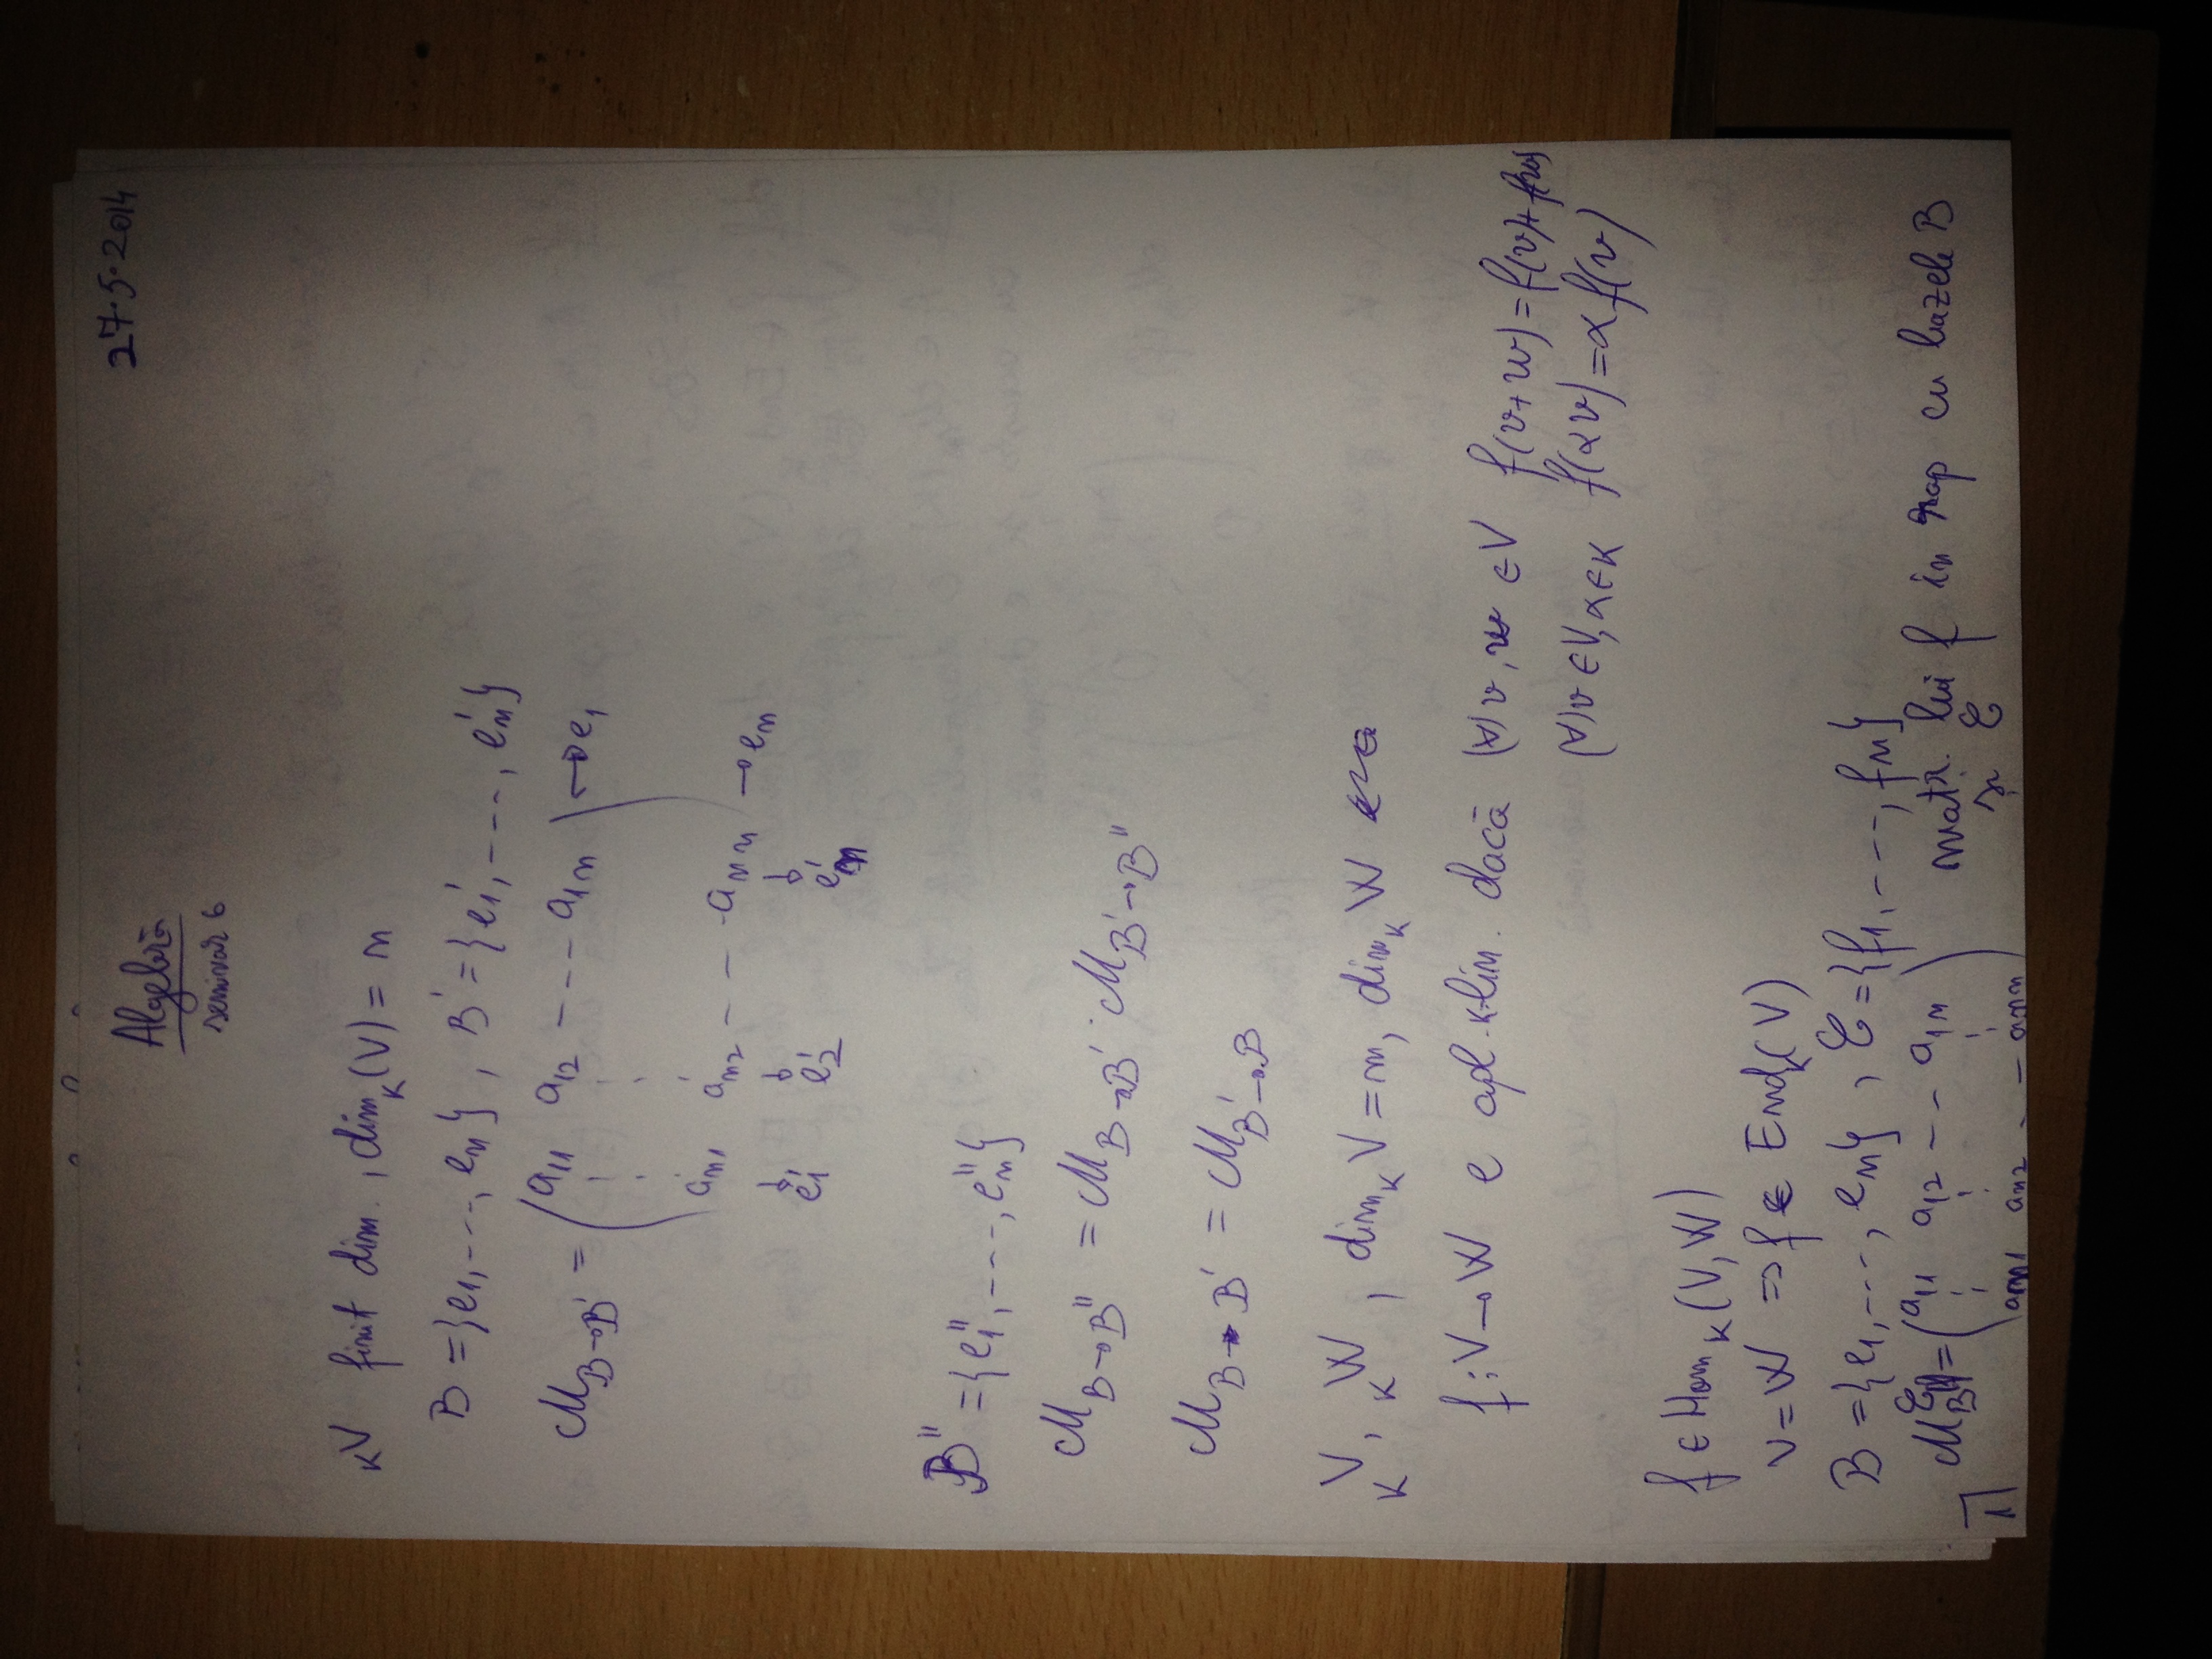 27.5.2014
Algebră
seminar 6
ₖV finit dim., dimₖ(V) = n
B = {e₁, ---, eₙ}, B' = {e₁', ---, eₙ'}
M_{B→B'} = ( a₁₁ a₁₂ --- a₁ₙ ) → e₁
aₙ₁ aₙ₂ -- - aₙₙ → eₙ
↓ ↓ ↓
e₁' e₂' eₙ'
B'' = {e₁'', ---, eₙ''}
M_{B→B''} = M_{B→B'} · M_{B'→B''}
M_{B→B'} = M_{B'→B}
ₖV, ₖW, dimₖ V = n, dimₖ W
f : V → W e apl. k-lin. dacă (∀) v, w ∈ V f(v+w) = f(v) + f(w)
(∀) v ∈ V, α ∈ K f(αv) = α f(v)
f ∈ Homₖ(V, W)
V = W ⇒ f ∈ Endₖ(V)
B = {e₁, ---, eₙ}, C = {f₁, ---, fₙ}
M_B^C(f) = ( a₁₁ a₁₂ -- a₁ₙ ) matr. lui f in rap cu bazele B
și C
aₙ₁ aₙ₂ -- aₙₙ
1